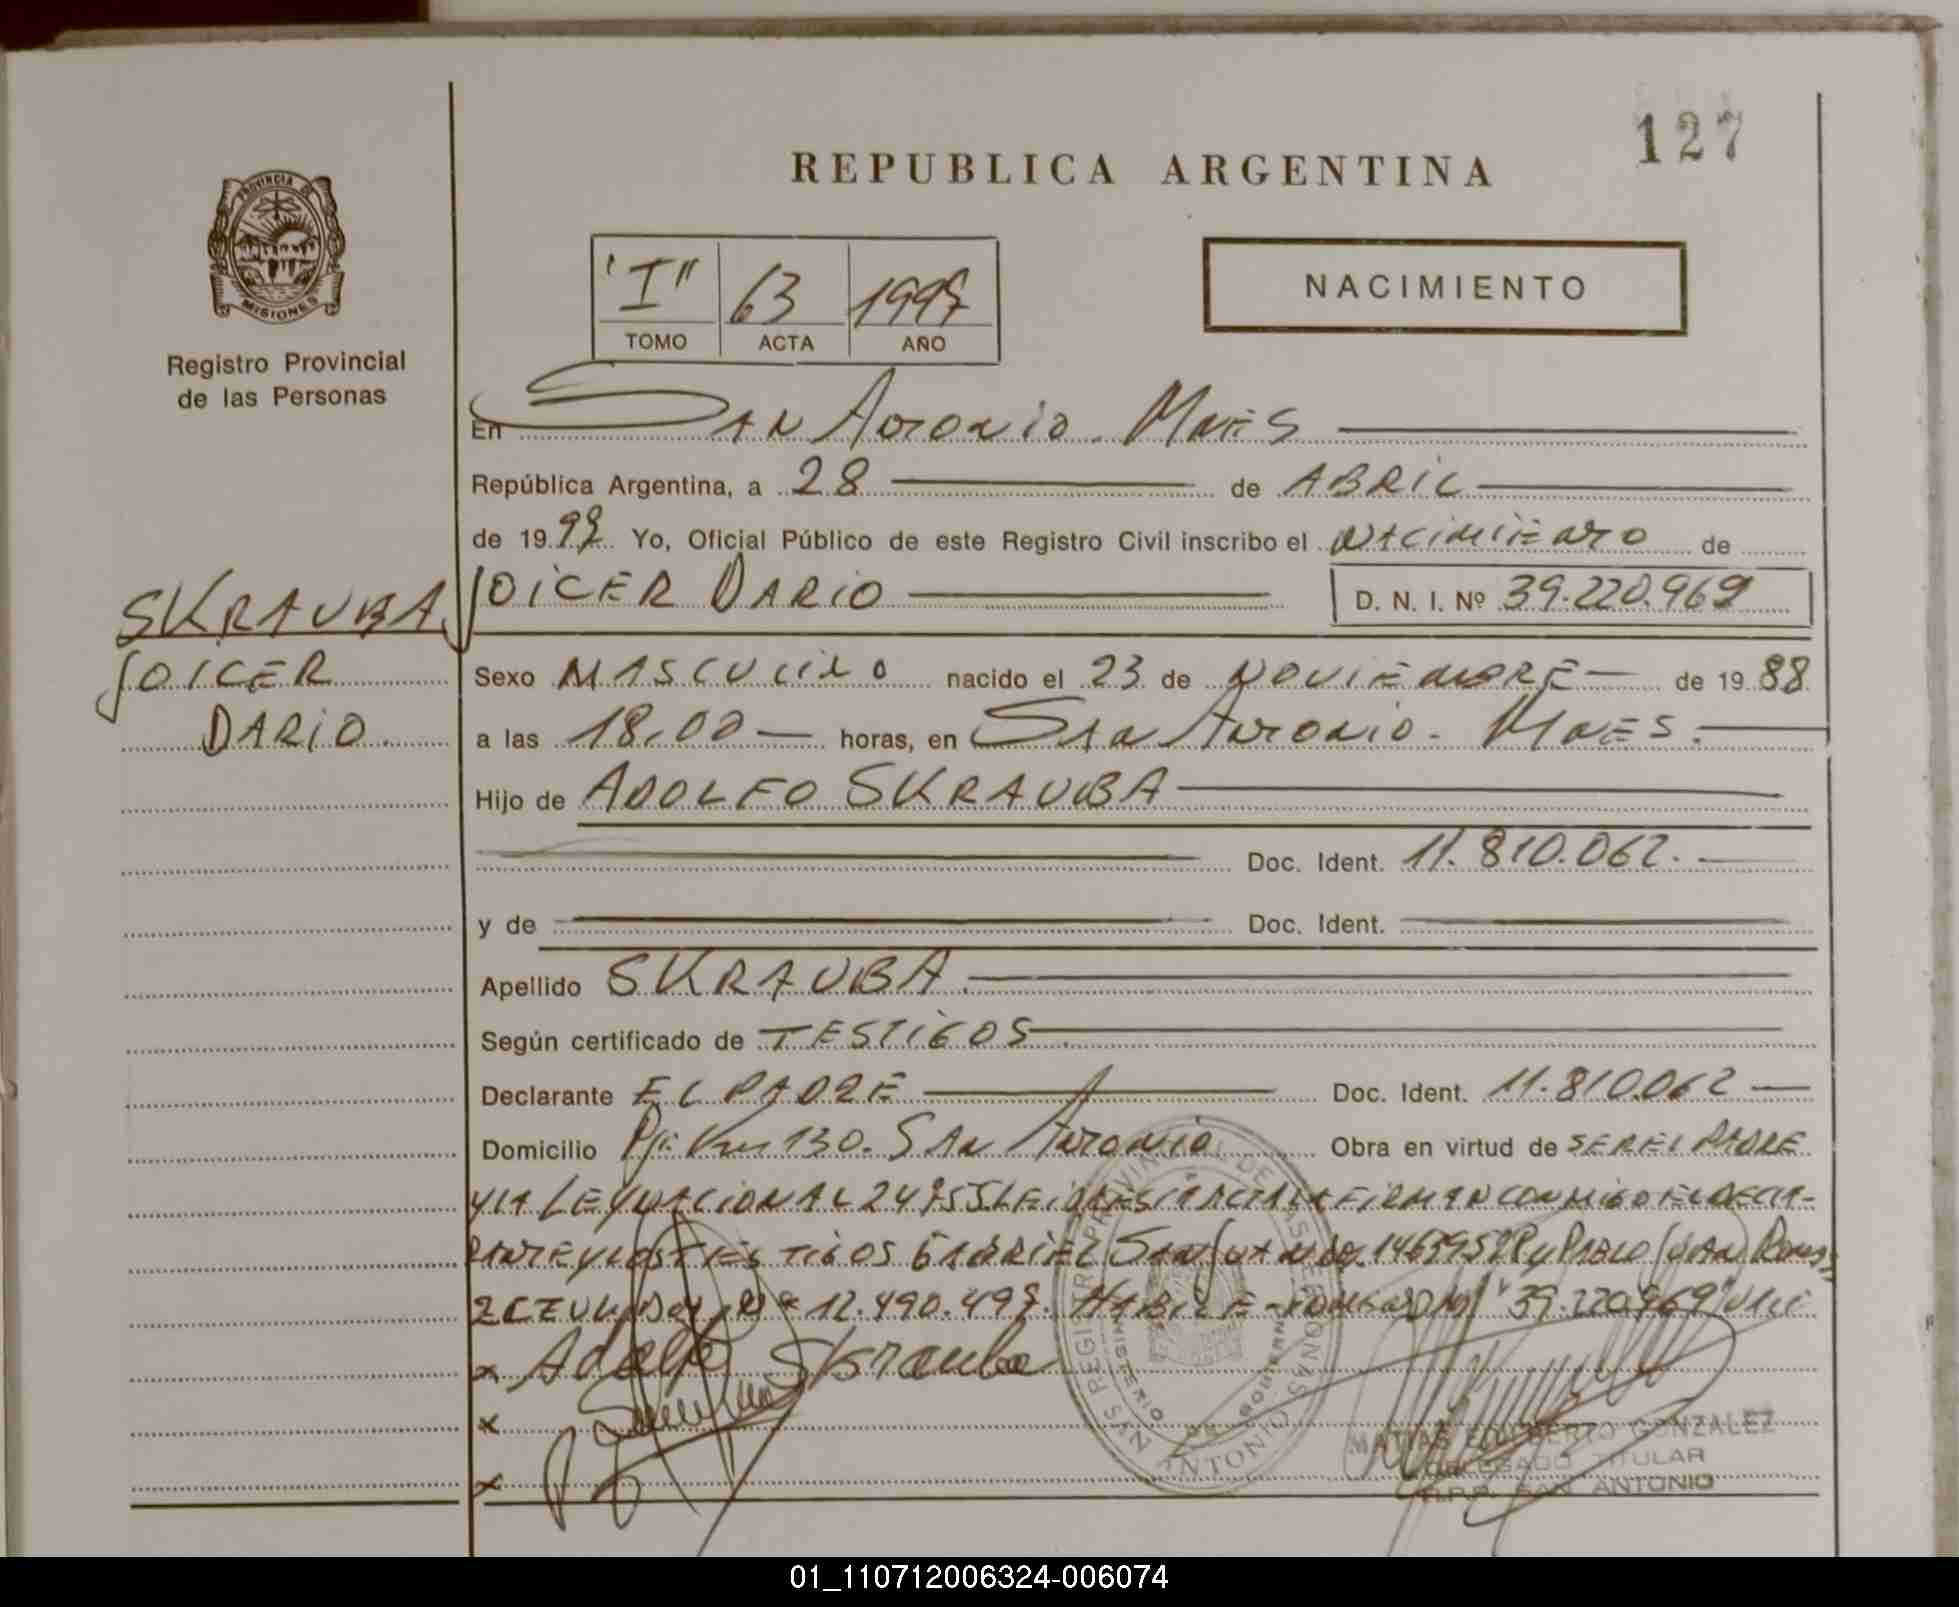 127
REPUBLICA ARGENTINA
PROVINCIA DE
MISIONES
Registro Provincial
de las Personas
"I" 63 1997
TOMO ACTA AÑO
NACIMIENTO
En San Antonio. Mnes
República Argentina, a 28 de ABRIL
de 1997 Yo, Oficial Público de este Registro Civil inscribo el NACIMIENTO de
JOICER DARIO D. N. I. Nº 39.220.969
SKRAUBA
JOICER
DARIO.
Sexo MASCULINO nacido el 23 de NOVIEMBRE de 1988
a las 18,00 horas, en San Antonio. Mnes.
Hijo de ADOLFO SKRAUBA
Doc. Ident. 11.810.062.
y de Doc. Ident.
Apellido SKRAUBA.
Según certificado de TESTIGOS
Declarante EL PADRE Doc. Ident. 11.810.062
Domicilio Km 130. San Antonio Obra en virtud de SER EL PADRE
Y LA LEY NACIONAL 24755 LEIDA ESTA ACTA LA FIRMAN CONMIGO EL DECLA-
RANTE Y LOS TESTIGOS GABRIEL PABLO JUAN
12.490.497. "39.220.969"
x Adolfo Skrauba
x
x
MATIAS EDILBERTO GONZALEZ
DELEGADO TITULAR
R.P.P. SAN ANTONIO
01_110712006324-006074